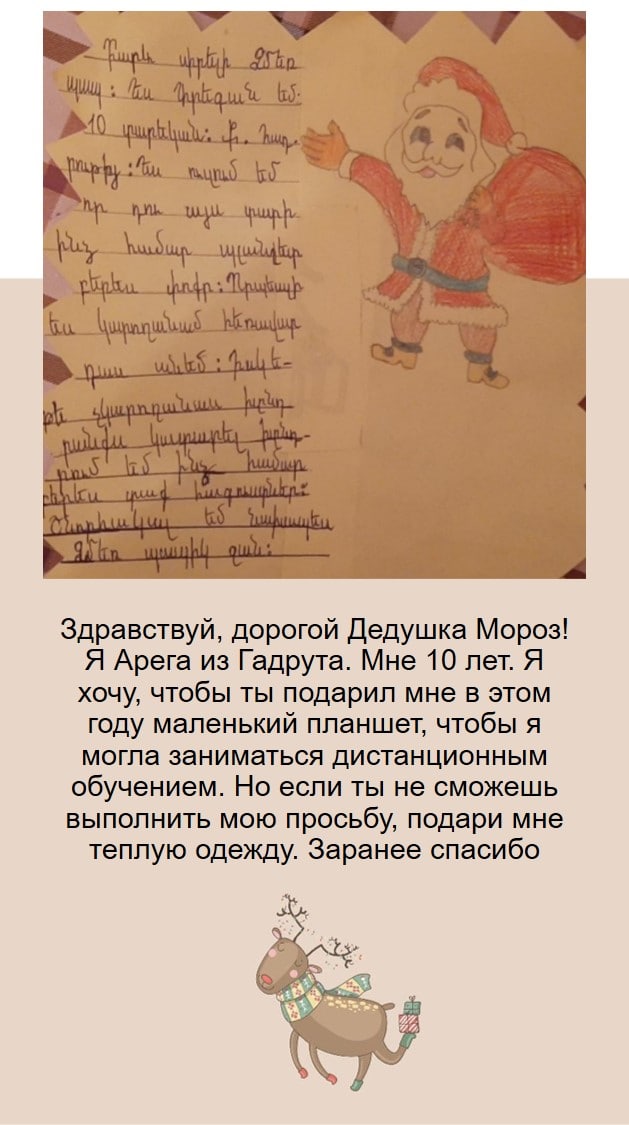 Բարև սիրելի Ձմեռ
պապ: Ես
եմ
10 տարեկան: Ք. Հադ-
րութից: Ես ուզում եմ
որ դու այս տարի
ինձ համար պլանշետ
բերես փոքր: Որպեսզի
ես կարողանամ հեռավար
դաս անեմ: Իսկ ե-
թե չկարողանաս խնդ
րանքս կատարել խնդ-
րում եմ ինձ համար
բերես տաք հագուստներ:
Շնորհակալ եմ նախապես
Ձմեռ պապիկ ջան:
Здравствуй, дорогой Дедушка Мороз!
Я Арега из Гадрута. Мне 10 лет. Я
хочу, чтобы ты подарил мне в этом
году маленький планшет, чтобы я
могла заниматься дистанционным
обучением. Но если ты не сможешь
выполнить мою просьбу, подари мне
теплую одежду. Заранее спасибо